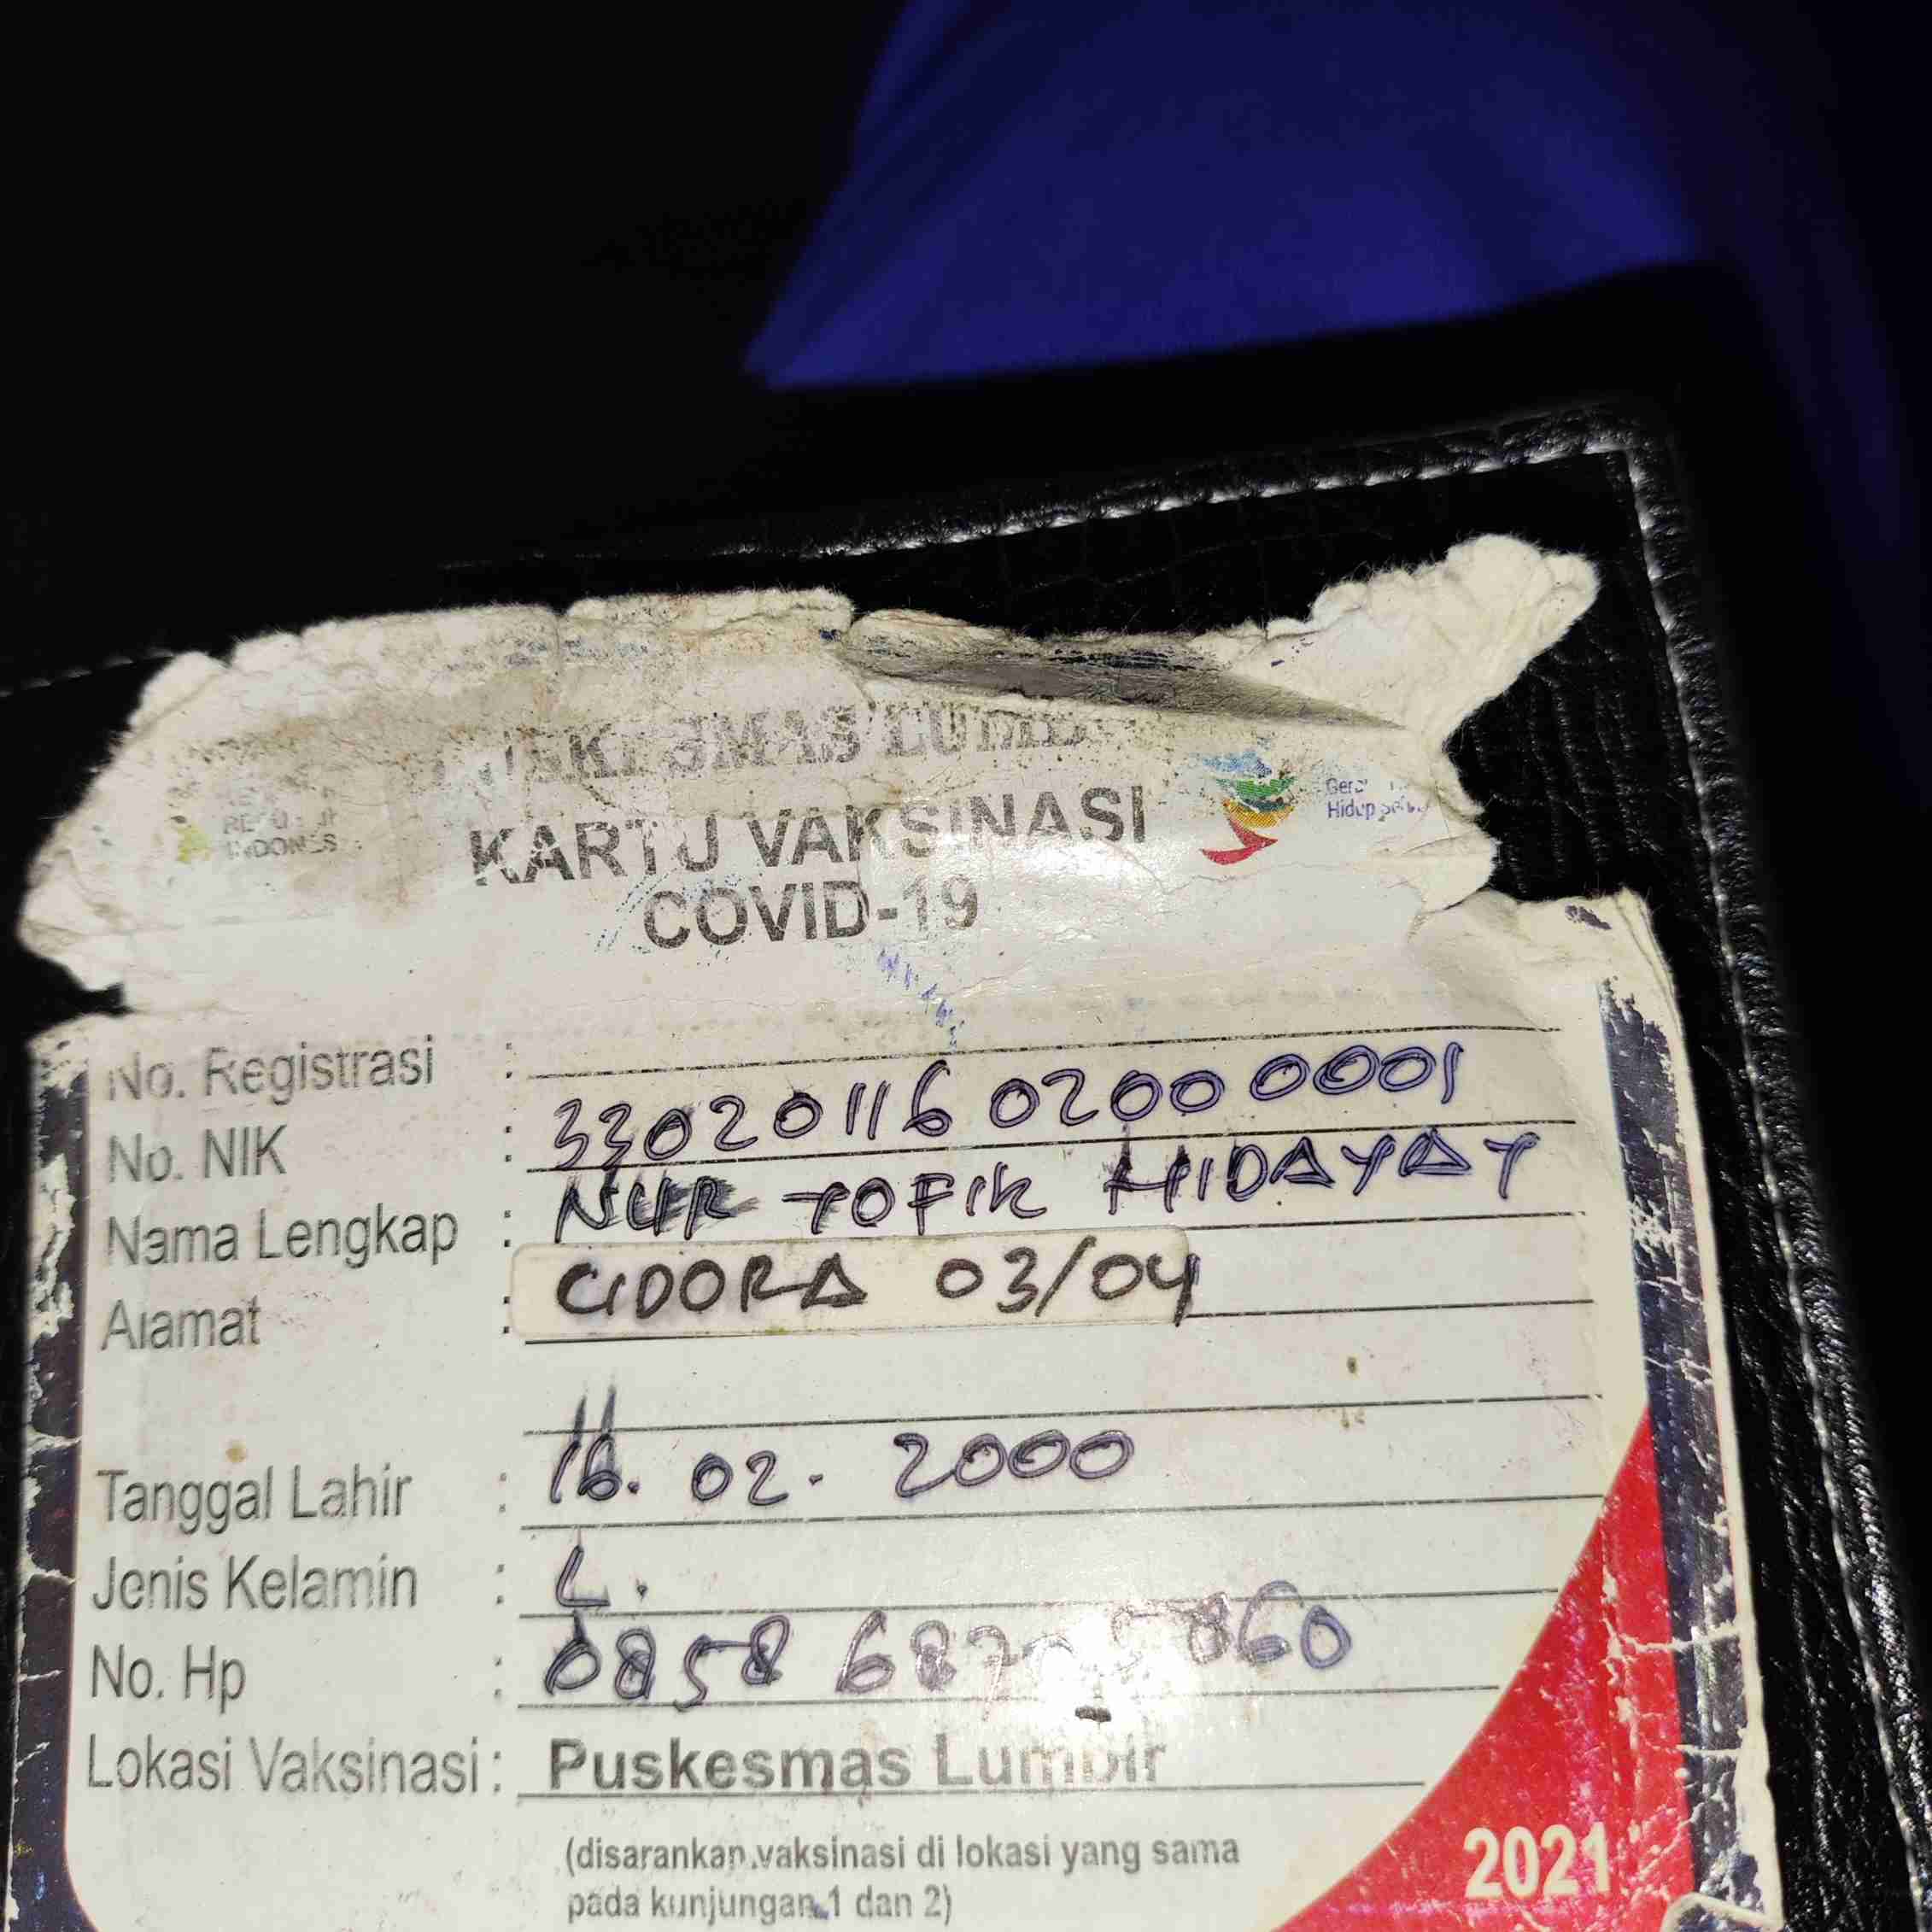 KARTU VAKSINASI
COVID-19
No. Registrasi :
No. NIK : 3302011602000 0001
Nama Lengkap : NUR TOFIK HIDAYAT
Alamat : CIDORA 03/04
Tanggal Lahir : 16. 02. 2000
Jenis Kelamin : L.
No. Hp : 0858
Lokasi Vaksinasi : Puskesmas Lumbir
(disarankan vaksinasi di lokasi yang sama
pada kunjungan 1 dan 2)
2021